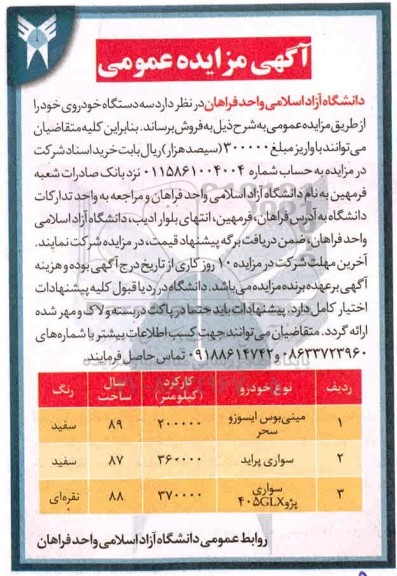 آگهی مزایده عمومی
دانشگاه آزاد اسلامی واحد فراهان در نظر دارد سه دستگاه خودروی خود را
از طریق مزایده عمومی به شرح ذیل به فروش برساند. بنابراین کلیه متقاضیان
می‌توانند با واریز مبلغ ۳۰۰۰۰۰ (سیصد هزار) ریال بابت خرید اسناد شرکت
در مزایده به حساب شماره ۰۱۱۵۸۶۱۰۰۴۰۰۴ نزد بانک صادرات شعبه
فرمهین به نام دانشگاه آزاد اسلامی واحد فراهان و مراجعه به واحد تدارکات
دانشگاه به آدرس فراهان، فرمهین، انتهای بلوار ادیب، دانشگاه آزاد اسلامی
واحد فراهان، ضمن دریافت برگه پیشنهاد قیمت، در مزایده شرکت نمایند.
آخرین مهلت شرکت در مزایده ۱۰ روز کاری از تاریخ درج آگهی بوده و هزینه
آگهی بر عهده برنده مزایده می‌باشد. دانشگاه در رد یا قبول کلیه پیشنهادات
اختیار کامل دارد. پیشنهادات باید حتما در پاکت دربسته و لاک و مهر شده
ارائه گردد. متقاضیان می‌توانند جهت کسب اطلاعات بیشتر با شماره‌های
۰۸۶۳۳۷۲۳۹۶۰ و ۰۹۱۸۸۶۱۴۷۴۲ تماس حاصل فرمایند.
ردیف نوع خودرو کارکرد (کیلومتر) سال ساخت رنگ
۱ مینی‌بوس ایسوزو سحر ۲۰۰۰۰۰ ۸۹ سفید
۲ سواری پراید ۳۶۰۰۰۰ ۸۷ سفید
۳ سواری پژو ۴۰۵GLX ۳۷۰۰۰۰ ۸۸ نقره‌ای
روابط عمومی دانشگاه آزاد اسلامی واحد فراهان